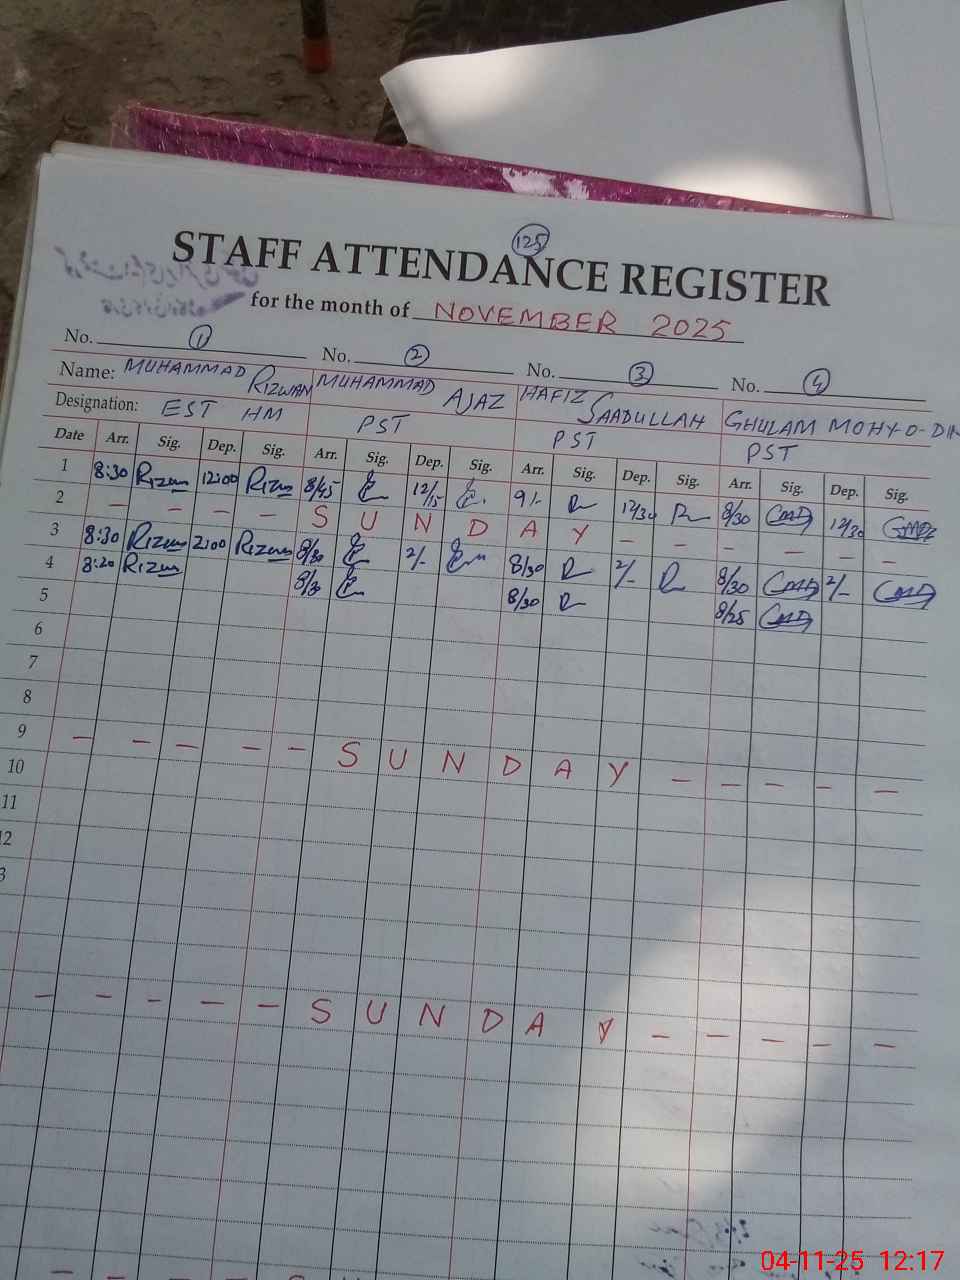 125
STAFF ATTENDANCE REGISTER
for the month of NOVEMBER 2025
No. 1 No. 2 No. 3 No. 4
Name: MUHAMMAD RIZWAN MUHAMMAD AJAZ HAFIZ SAADULLAH GHULAM MOHY-D-DIN
Designation: EST HM PST PST PST
Date Arr. Sig. Dep. Sig. Arr. Sig. Dep. Sig. Arr. Sig. Dep. Sig. Arr. Sig. Dep. Sig.
1 8:30 Rizwan 12:00 Rizwan 8/45 12/15 9/- 12/30 8/30 12/30
2 – – – – S U N D A Y – – – – –
3 8:30 Rizwan 2:00 Rizwan 8/30 2/- 8/30 2/- 8/30 2/-
4 8:20 Rizwan 8/30 8/30 8/25
5
6
7
8
9 – – – – – S U N D A Y – – – – –
10
11
12
3
– – – – – S U N D A Y – – – – –
04-11-25 12:17